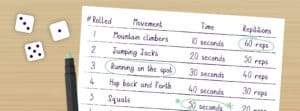 # Rolled Movement Time Repititions
1 Mountain climbers 10 seconds 60 reps
2 Jumping Jacks 20 seconds 50 reps
3 Running on the spot 30 seconds 40 reps
4 Hop back and Forth 40 seconds 30 reps
5 Squats 50 seconds 20 reps